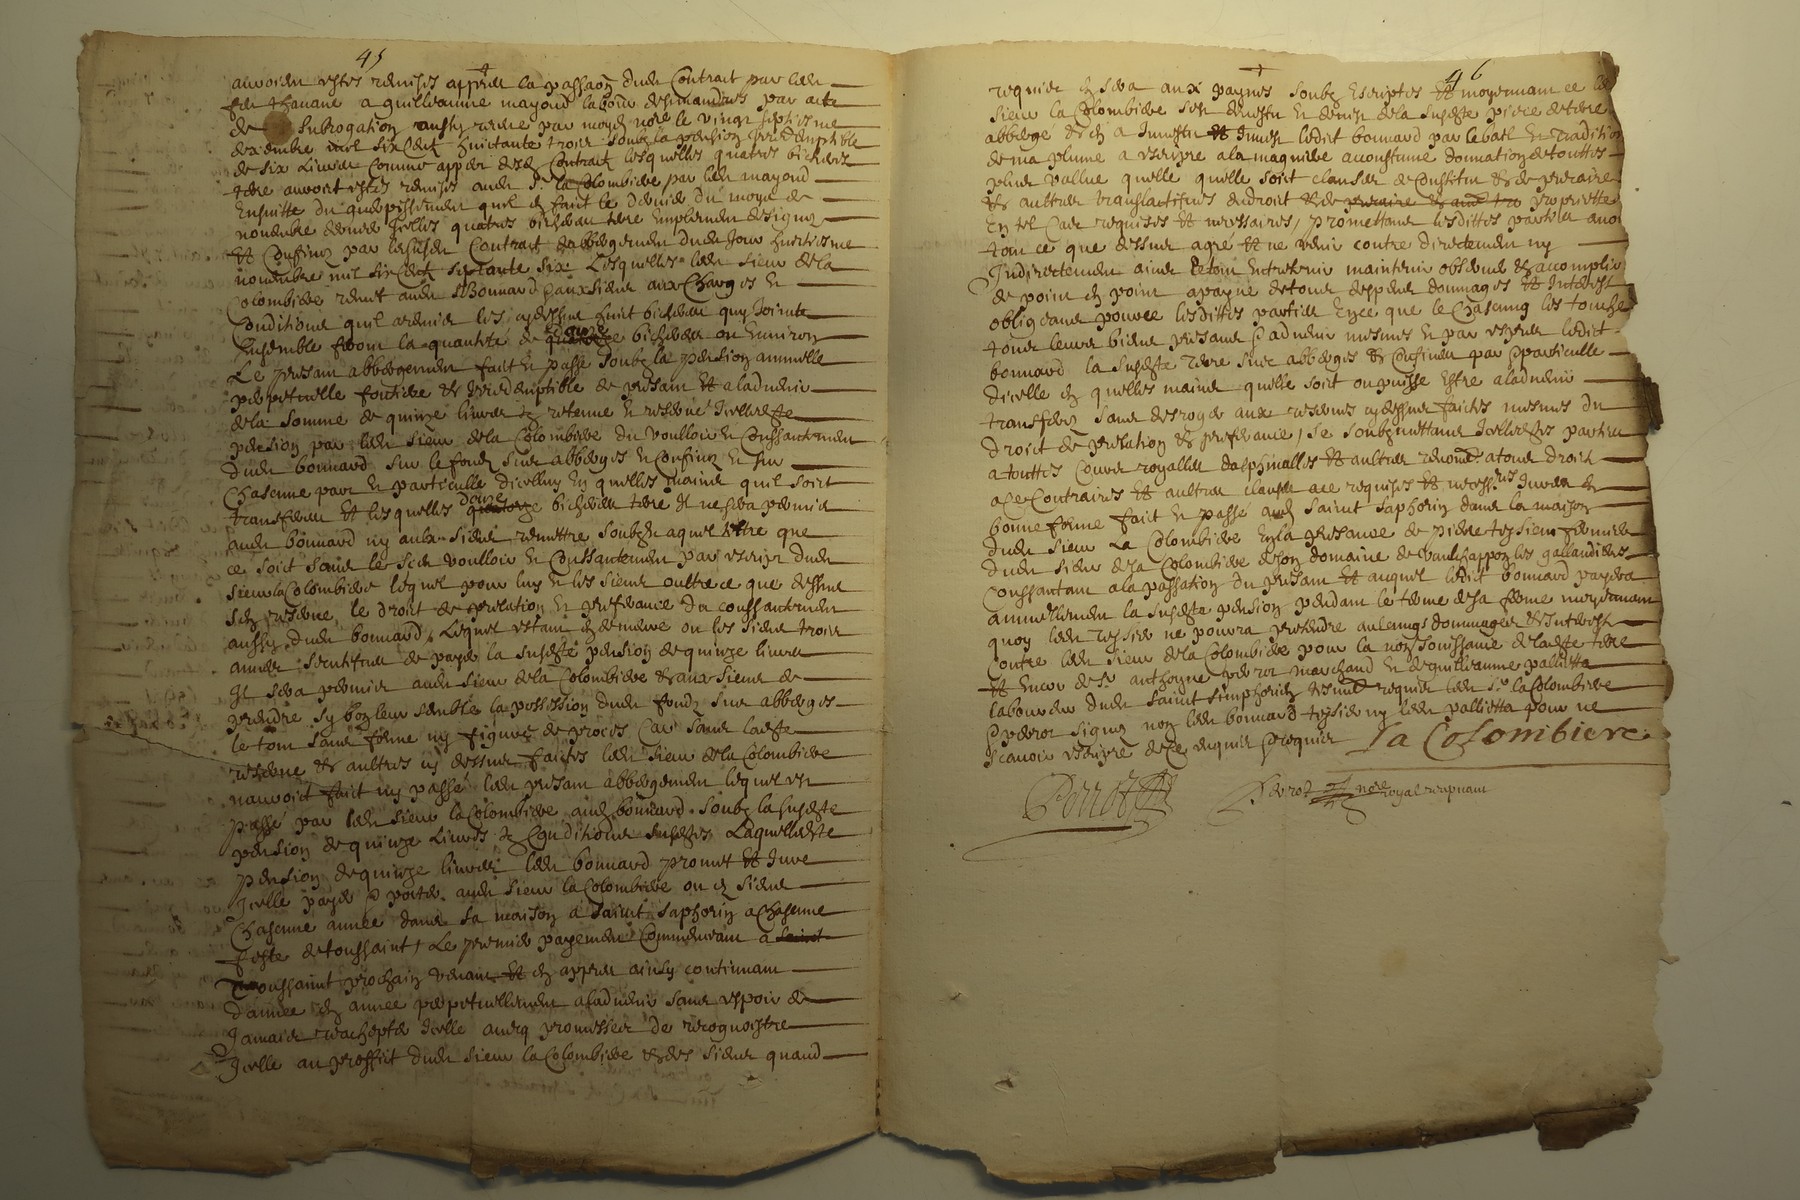 45
auroient estés remises appres la passaon dudt Contrat par ledt
feu Thanane a guilheaume mayoud laboureur desmandres par acte
de subrogation aussy receue par moyd nore le vingt septiesme
decembre mil six Cent huictante trois soubz la pension irredemptible
de six Liuvres Comme apper dudt Contrat lesquelles quatres bichereés
terre auroit estés remises audt Sr la Colombiere par ledt mayoud
Ensuitte du guerpissement quil en faict le dernier du moys de
nouembre dernier Jcelles quatres bichereau terre Emplement designez
et Confinez par le susdt Contract dabbergement dudt Jour huictiesme
nouembre mil six Cent septante six Lesquelles ledt sieur de la
Colombiere remet audt Sr Bonnard et aux siens aux Charges et
Conditions quil a remis les cydessus huit bichereau quy Jointe
Ensemble feront la quantité de bichereés ou Enuiron
Le present abbergement fait et passé soubz la pension annuelle
perpetuelle fonciere et irredemptible de present et aladuenir
de la somme de quinze liures retenue et reserue Jcelle dte
pension par ledt sieur de la Colombiere du voulloir et Consentement
dudt bonnard sur le fondz sus abbergés et Confinez et sur
Chascune part et particulle dicelluy En quelles mains quil soit
transferer et lesquelles douze bichereés terre Il ne sera permis
audt bonnard ny aux siens remettre soubz aquel tiltre que
ce soit sans le sceu voulloir et Consentement par escript dudt
sieur la Colombiere lequel pour luy et les siens oultre ce que dessus
sen reserue le droit de prelation et preferance du consentement
aussy dudt bonnard, Lequel estant en demeure ou les siens trois
années Sentifuer de payer la susdte pension de quinze liures
Il sera permis audt sieur de la Colombiere et aux siens de
prendre sy bon leur semble la possession dudt fondz sus abbergés
le tout sans forme ny figure de procés Car sans ladte
reserue et aultres cy dessus faictes ledt sieur de la Colombiere
nauroit faict ny passé ledt present abbergement lequel est
passé par ledt sieur la Colombiere audt bonnard soubz la susdte
pension de quinze Liures et Conditions susdtes Laquelle dte
pension de quinze liures ledt bonnard promet et Jure
Jcelle payer et porter audt sieur la Colombiere ou es siens
Chascune année dans sa maison a saint saphorin a Chascune
feste de toussaint, Le premier payement Commencant a
Toussaint prochain venant et en appres ainsy continuant
dannée en année perpetuellement aladuenir sans espoir de
Jamais rachepter Jcelle auecq promesses de recognoistre
Jcelle au proffit dudt sieur la Colombiere et des siens quand
46
requis en sera aux paynes soubz Escriptes et moyennant ce le
sieur la Colombiere sest deuestu et demis de la susdte piece de terre
abbergé et en a Jnuestu et Jnuest ledit bonnard par le bail et tradition
de ma plume a escripre a la maniere accoustumé donnation de touttes
plus vallue quelle quelle soit clauses de Constitu et de precaire
et aultres translactifues endroit propriette
En tel Cas requises et necessaires, promettans lesdittes parties auoir
tout ce que dessus agré et ne venir contre directement ny
Jndirectement ains le tout Entretenir maintenir obseruer et accomplir
de point en point a payne de tous despens dommages et Jnterest
obligeans pource lesdittes parties En ce que le Chascung les touche
tous leurs biens presans et aduenir mesmes et par expres ledit
bonnard la susdte terre sus abbergés et Confinée par particulle
dicelle en quelles mains quelle soit ou puisse Estre aladuenir
transferer sans desroger aux reserues cydessus faictes mesmes du
droict de prelation et preferance, se soubzmettans Jcelles dtes parties
a touttes Cours royalles dalphinalles et aultres renoncé a tous droits
a ce Contraires et aultres clauses a ce requises et necessres Juré en
bonne forme fait et passé audt saint saphorin dans la maison
dudt sieur La Colombiere En la presance de pierre teyssier fermier
dudt sieur de la Colombiere de son domaine de
Consantant a la passation du presant et auquel ledict bonnard payera
annuellement la susdte pension pendant le terme de sa ferme moyennant
quoy ledt teyssier ne pourra pretendre aulcungs dommages et Jnterest
Contre ledt sieur de la Colombiere pour la non Jouissance de ladte terre
et Encor de sr anthoyne perrot marchand et de guilheaume pallietta
laboureur dudt saint simphorien tesmoins requis ledt sr la Colombiere
et perrot signez non ledt bonnard teyssier ny ledt pallietta pour ne
scauoir escripre de ce enquis et requis La Colombiere
Perrot
Perrot nore royal recepuant